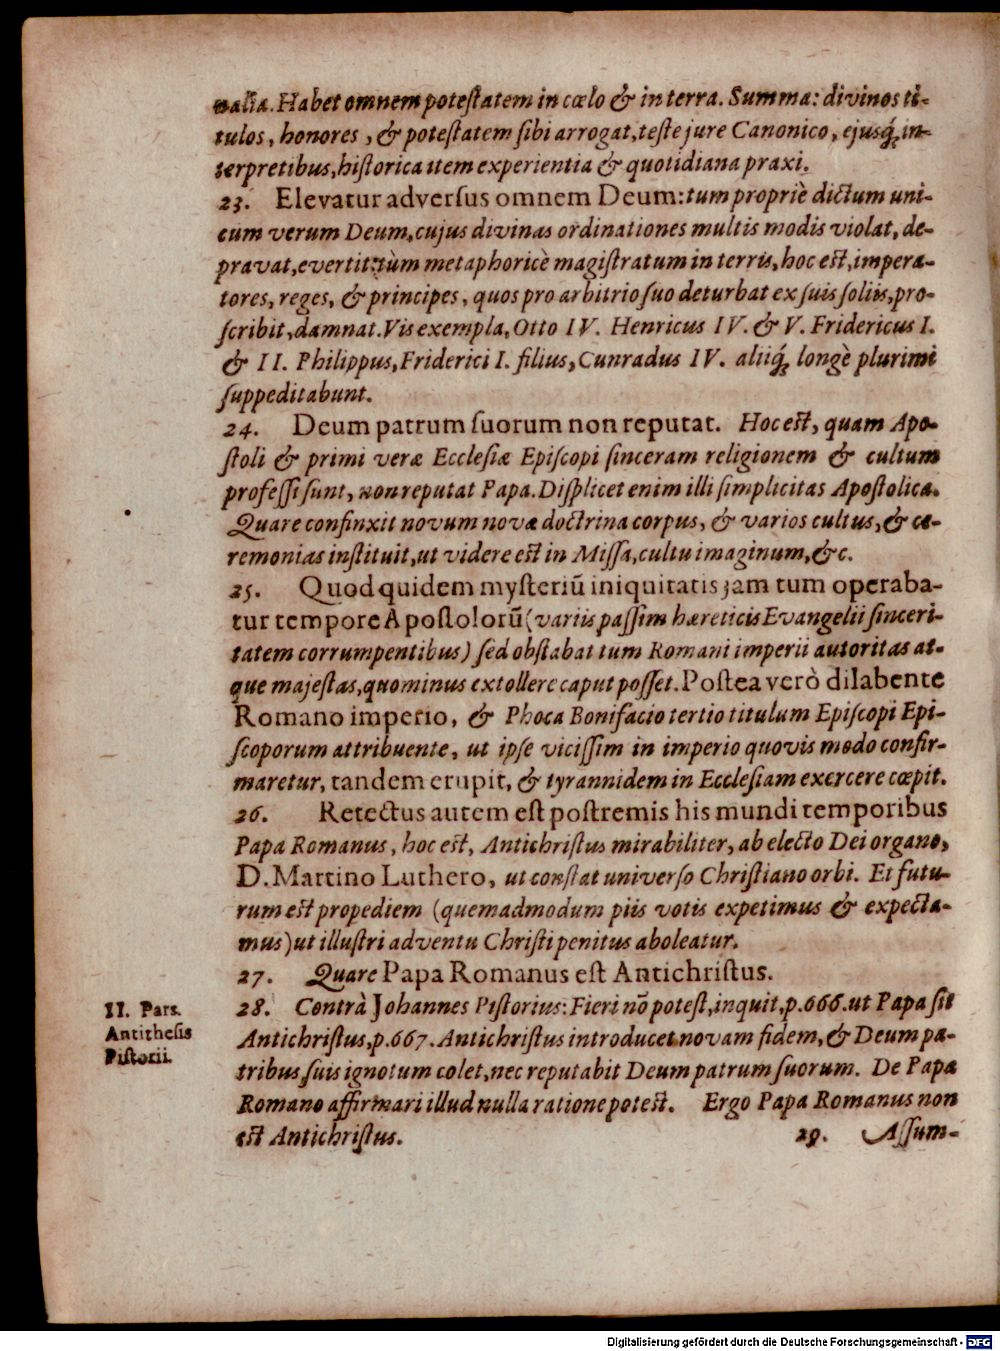 nalia. Habet omnem potestatem in cœlo & in terra. Summa: divinos ti-
tulos, honores, & potestatem sibi arrogat, teste jure Canonico, ejusq́; in-
terpretibus, historica item experientia & quotidiana praxi.
23. Elevatur adversus omnem Deum: tum propriè dictum uni-
cum verum Deum, cujus divinas ordinationes multis modis violat, de-
pravat, evertit: tùm metaphoricè magistratum in terris, hoc est, impera-
tores, reges, & principes, quos pro arbitrio suo deturbat ex suis soliis, pro-
scribit, damnat. Vis exempla, Otto IV. Henricus IV. & V. Fridericus I.
& II. Philippus, Friderici I. filius, Cunradus IV. aliiq́; longè plurimi
suppeditabunt.
24. Deum patrum suorum non reputat. Hoc est, quam Apo-
stoli & primi veræ Ecclesiæ Episcopi sinceram religionem & cultum
professi sunt, non reputat Papa. Displicet enim illi simplicitas Apostolica.
Quare confinxit novum novæ doctrina corpus, & varios cultus, & ce-
remonias instituit, ut videre est in Missa, cultu imaginum, &c.
25. Quod quidem mysteriū iniquitatis jam tum operaba-
tur tempore Apostolorū (variis passim hæreticis Evangelii sinceri-
tatem corrumpentibus) sed obstabat tum Romani imperii autoritas at-
que majestas, quominus extollere caput posset. Postea verò dilabente
Romano imperio, & Phoca Bonifacio tertio titulum Episcopi Epi-
scoporum attribuente, ut ipse vicissim in imperio quovis modo confir-
maretur, tandem erupit, & tyrannidem in Ecclesiam exercere cœpit.
26. Retectus autem est postremis his mundi temporibus
Papa Romanus, hoc est, Antichristus mirabiliter, ab electo Dei organo,
D. Martino Luthero, ut constat universo Christiano orbi. Et futu-
rum est propediem (quemadmodum piis votis expetimus & expecta-
mus) ut illustri adventu Christi penitus aboleatur.
27. Quare Papa Romanus est Antichristus.
II. Pars.
Antithesis
Pistorii.
28. Contrà Johannes Pistorius: Fieri nō potest, inquit, p. 666. ut Papa sit
Antichristus, p. 667. Antichristus introducet novam fidem, & Deum pa-
tribus suis ignotum colet, nec reputabit Deum patrum suorum. De Papa
Romano affirmari illud nulla ratione potest. Ergo Papa Romanus non
est Antichristus.
29. Assum-
Digitalisierung gefördert durch die Deutsche Forschungsgemeinschaft - DFG